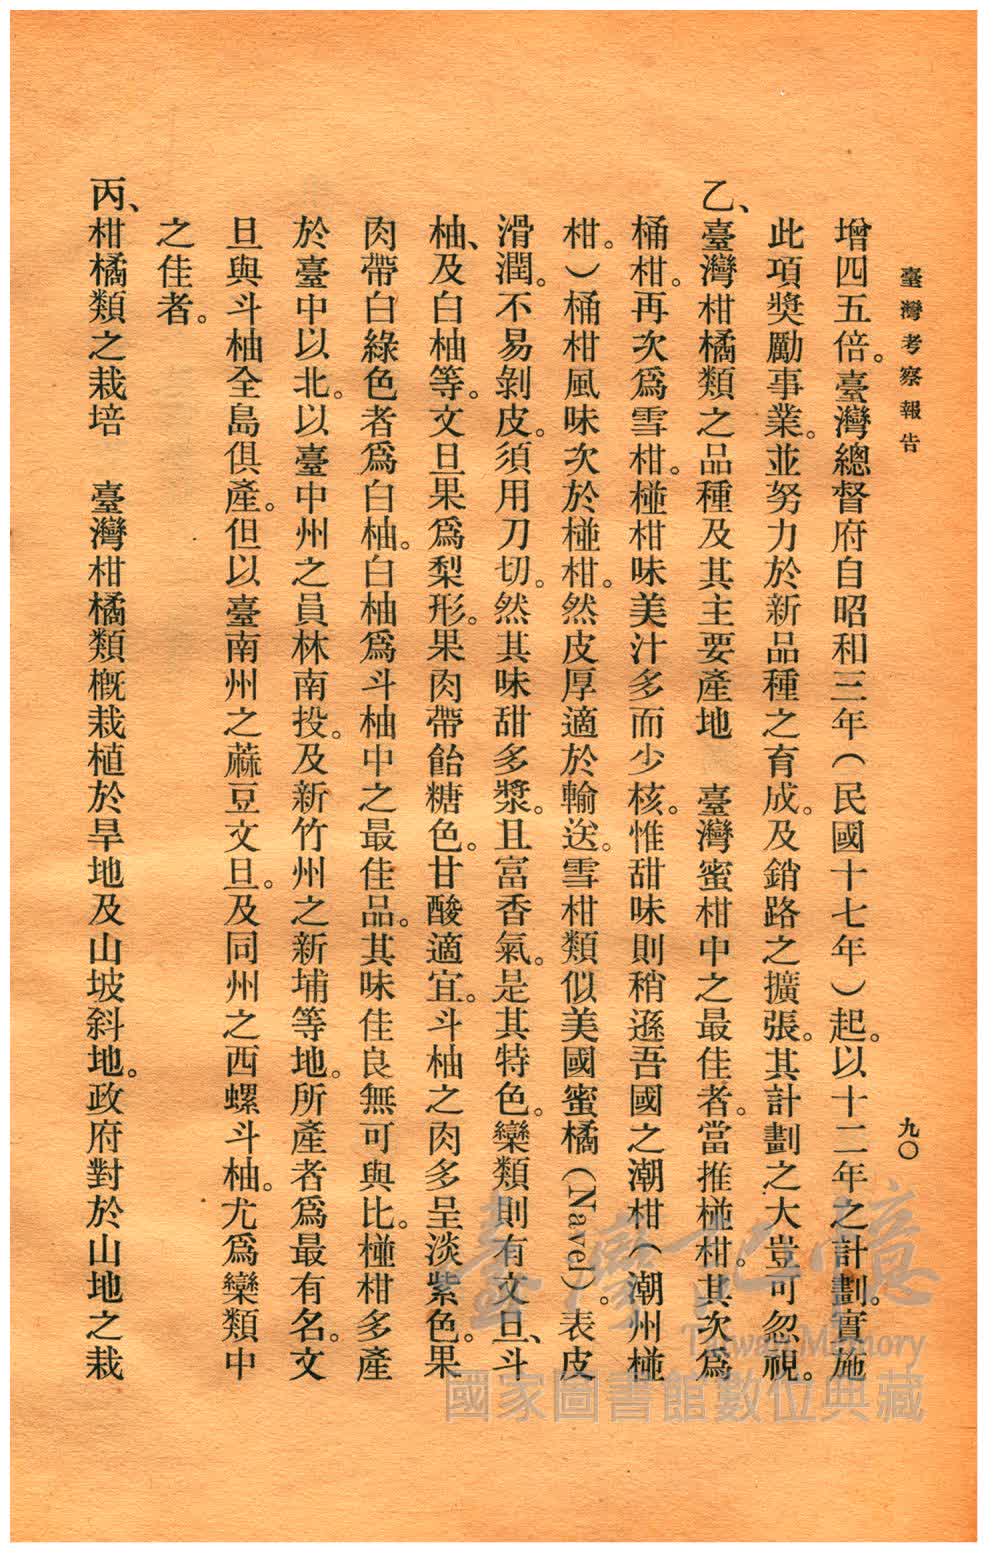 臺灣考察報告
九〇
增四五倍。臺灣總督府自昭和三年（民國十七年）起。以十二年之計劃。實施
此項獎勵事業。並努力於新品種之育成。及銷路之擴張。其計劃之大豈可忽視。
乙、臺灣柑橘類之品種及其主要產地　臺灣蜜柑中之最佳者。當推椪柑。其次爲
桶柑。再次爲雪柑。椪柑味美汁多而少核。惟甜味則稍遜吾國之潮柑（潮州椪
柑。）桶柑風味次於椪柑。然皮厚適於輸送。雪柑類似美國蜜橘（Navel）。表皮
滑潤。不易剝皮。須用刀切。然其味甜多漿。且富香氣。是其特色。欒類則有文旦、斗
柚、及白柚等。文旦果爲梨形。果肉帶飴糖色。甘酸適宜。斗柚之肉多呈淡紫色。果
肉帶白綠色者爲白柚。白柚爲斗柚中之最佳品。其味佳良無可與比。椪柑多產
於臺中以北。以臺中州之員林南投。及新竹州之新埔等地。所產者爲最有名。文
旦與斗柚全島俱產。但以臺南州之蔴豆文旦。及同州之西螺斗柚。尤爲欒類中
之佳者。
丙、柑橘類之栽培　臺灣柑橘類概栽植於旱地及山坡斜地。政府對於山地之栽
臺灣記憶
Taiwan Memory
國家圖書館數位典藏